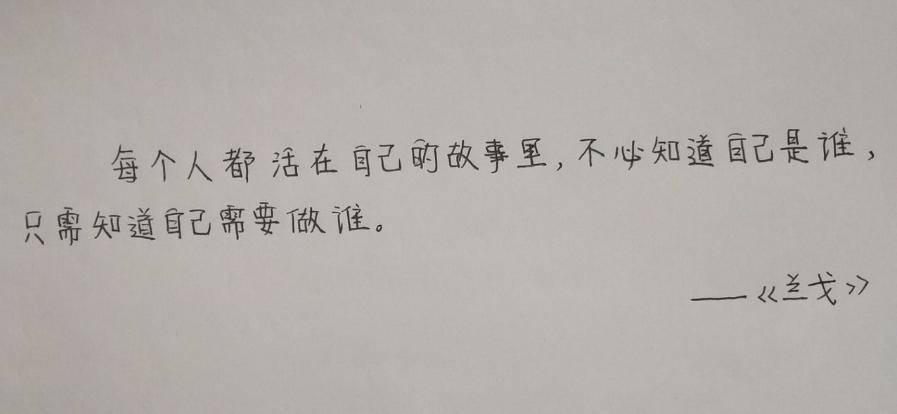 每个人都活在自己的故事里,不必知道自己是谁,
只需知道自己需要做谁。
——《兰戈》